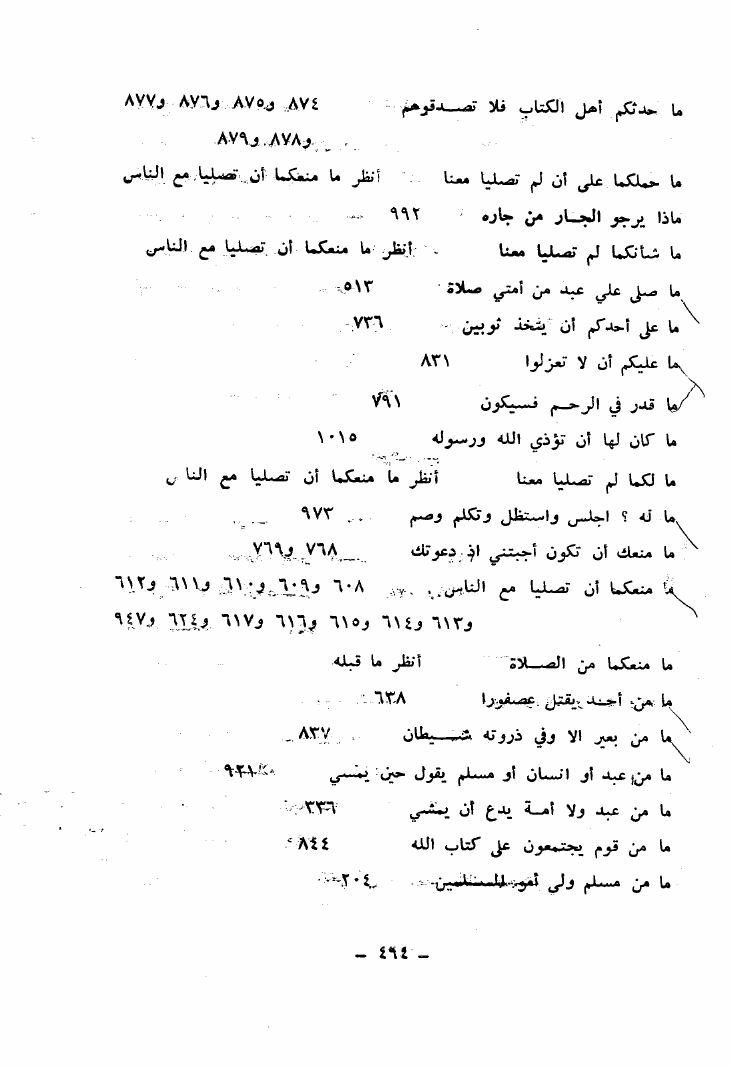 ما حدثكم أهل الكتاب فلا تصـدقوهم ٨٧٤ و٨٧٥ و٨٧٦ و٨٧٧
و٨٧٨ و٨٧٩
ما حملكما على أن لم تصليا معنا أنظر ما منعكما أن تصليا مع الناس
ماذا يرجو الجـار من جاره ٩٩٢
ما شأنكما لم تصليا معنا أنظر ما منعكما أن تصليا مع الناس
ما صلى علي عبد من أمتي صلاة ٥١٣
ما على أحدكم أن يتخذ ثوبين ٧٣٦
ما عليكم أن لا تعزلوا ٨٣١
ما قدر في الرحـم فسيكون ٧٩١
ما كان لها أن تؤذي الله ورسوله ١٠١٥
ما لكما لم تصليا معنا أنظر ما منعكما أن تصليا مع الناس
ما له ؟ اجلس واستظل وتكلم وصم ٩٧٣
ما منعك أن تكون أجبتني اذ دعوتك ٧٦٨ و٧٦٩
ما منعكما أن تصليا مع الناس ٦٠٨ و٦٠٩ و٦١٠ و٦١١ و٦١٢
و٦١٣ و٦١٤ و٦١٥ و٦١٦ و٦١٧ و٦٢٤ و٩٤٧
ما منعكما من الصـلاة أنظر ما قبله
ما من أحـد يقتل عصفورا ٦٣٨
ما من بعير الا وفي ذروته شـيطان ٨٣٧
ما من عبد أو انسان أو مسلم يقول حين يمسي ٩٢١
ما من عبـد ولا أمـة يدع أن يمشي ٣٣٦
ما من قوم يجتمعون على كتاب الله ٨٤٤
ما من مسلم ولي أمور المسلمين ٢٠٤
— ٤٦٤ —